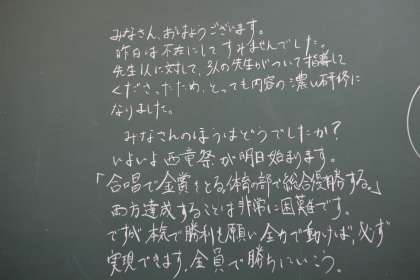 みなさん、おはようございます。
昨日は不在にしてすみませんでした。
先生1人に対して、3人の先生がついて指導して
くださったため、とっても内容の濃い研修に
なりました。
みなさんのほうはどうでしたか？
いよいよ西竜祭が明日始まります。
「合唱で金賞をとる、体育の部で総合優勝する。」
両方達成することは非常に困難です。
ですが、本気で勝利を願い全力で動けば、必ず
実現できます。全員で勝ちにいこう。